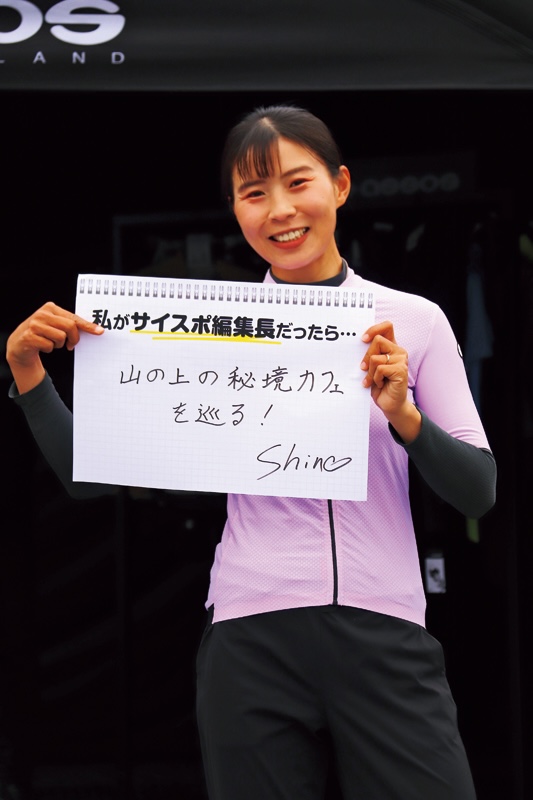 OS
LAND
assos
私がサイスポ編集長だったら…
山の上の秘境カフェ
を巡る!
Shino